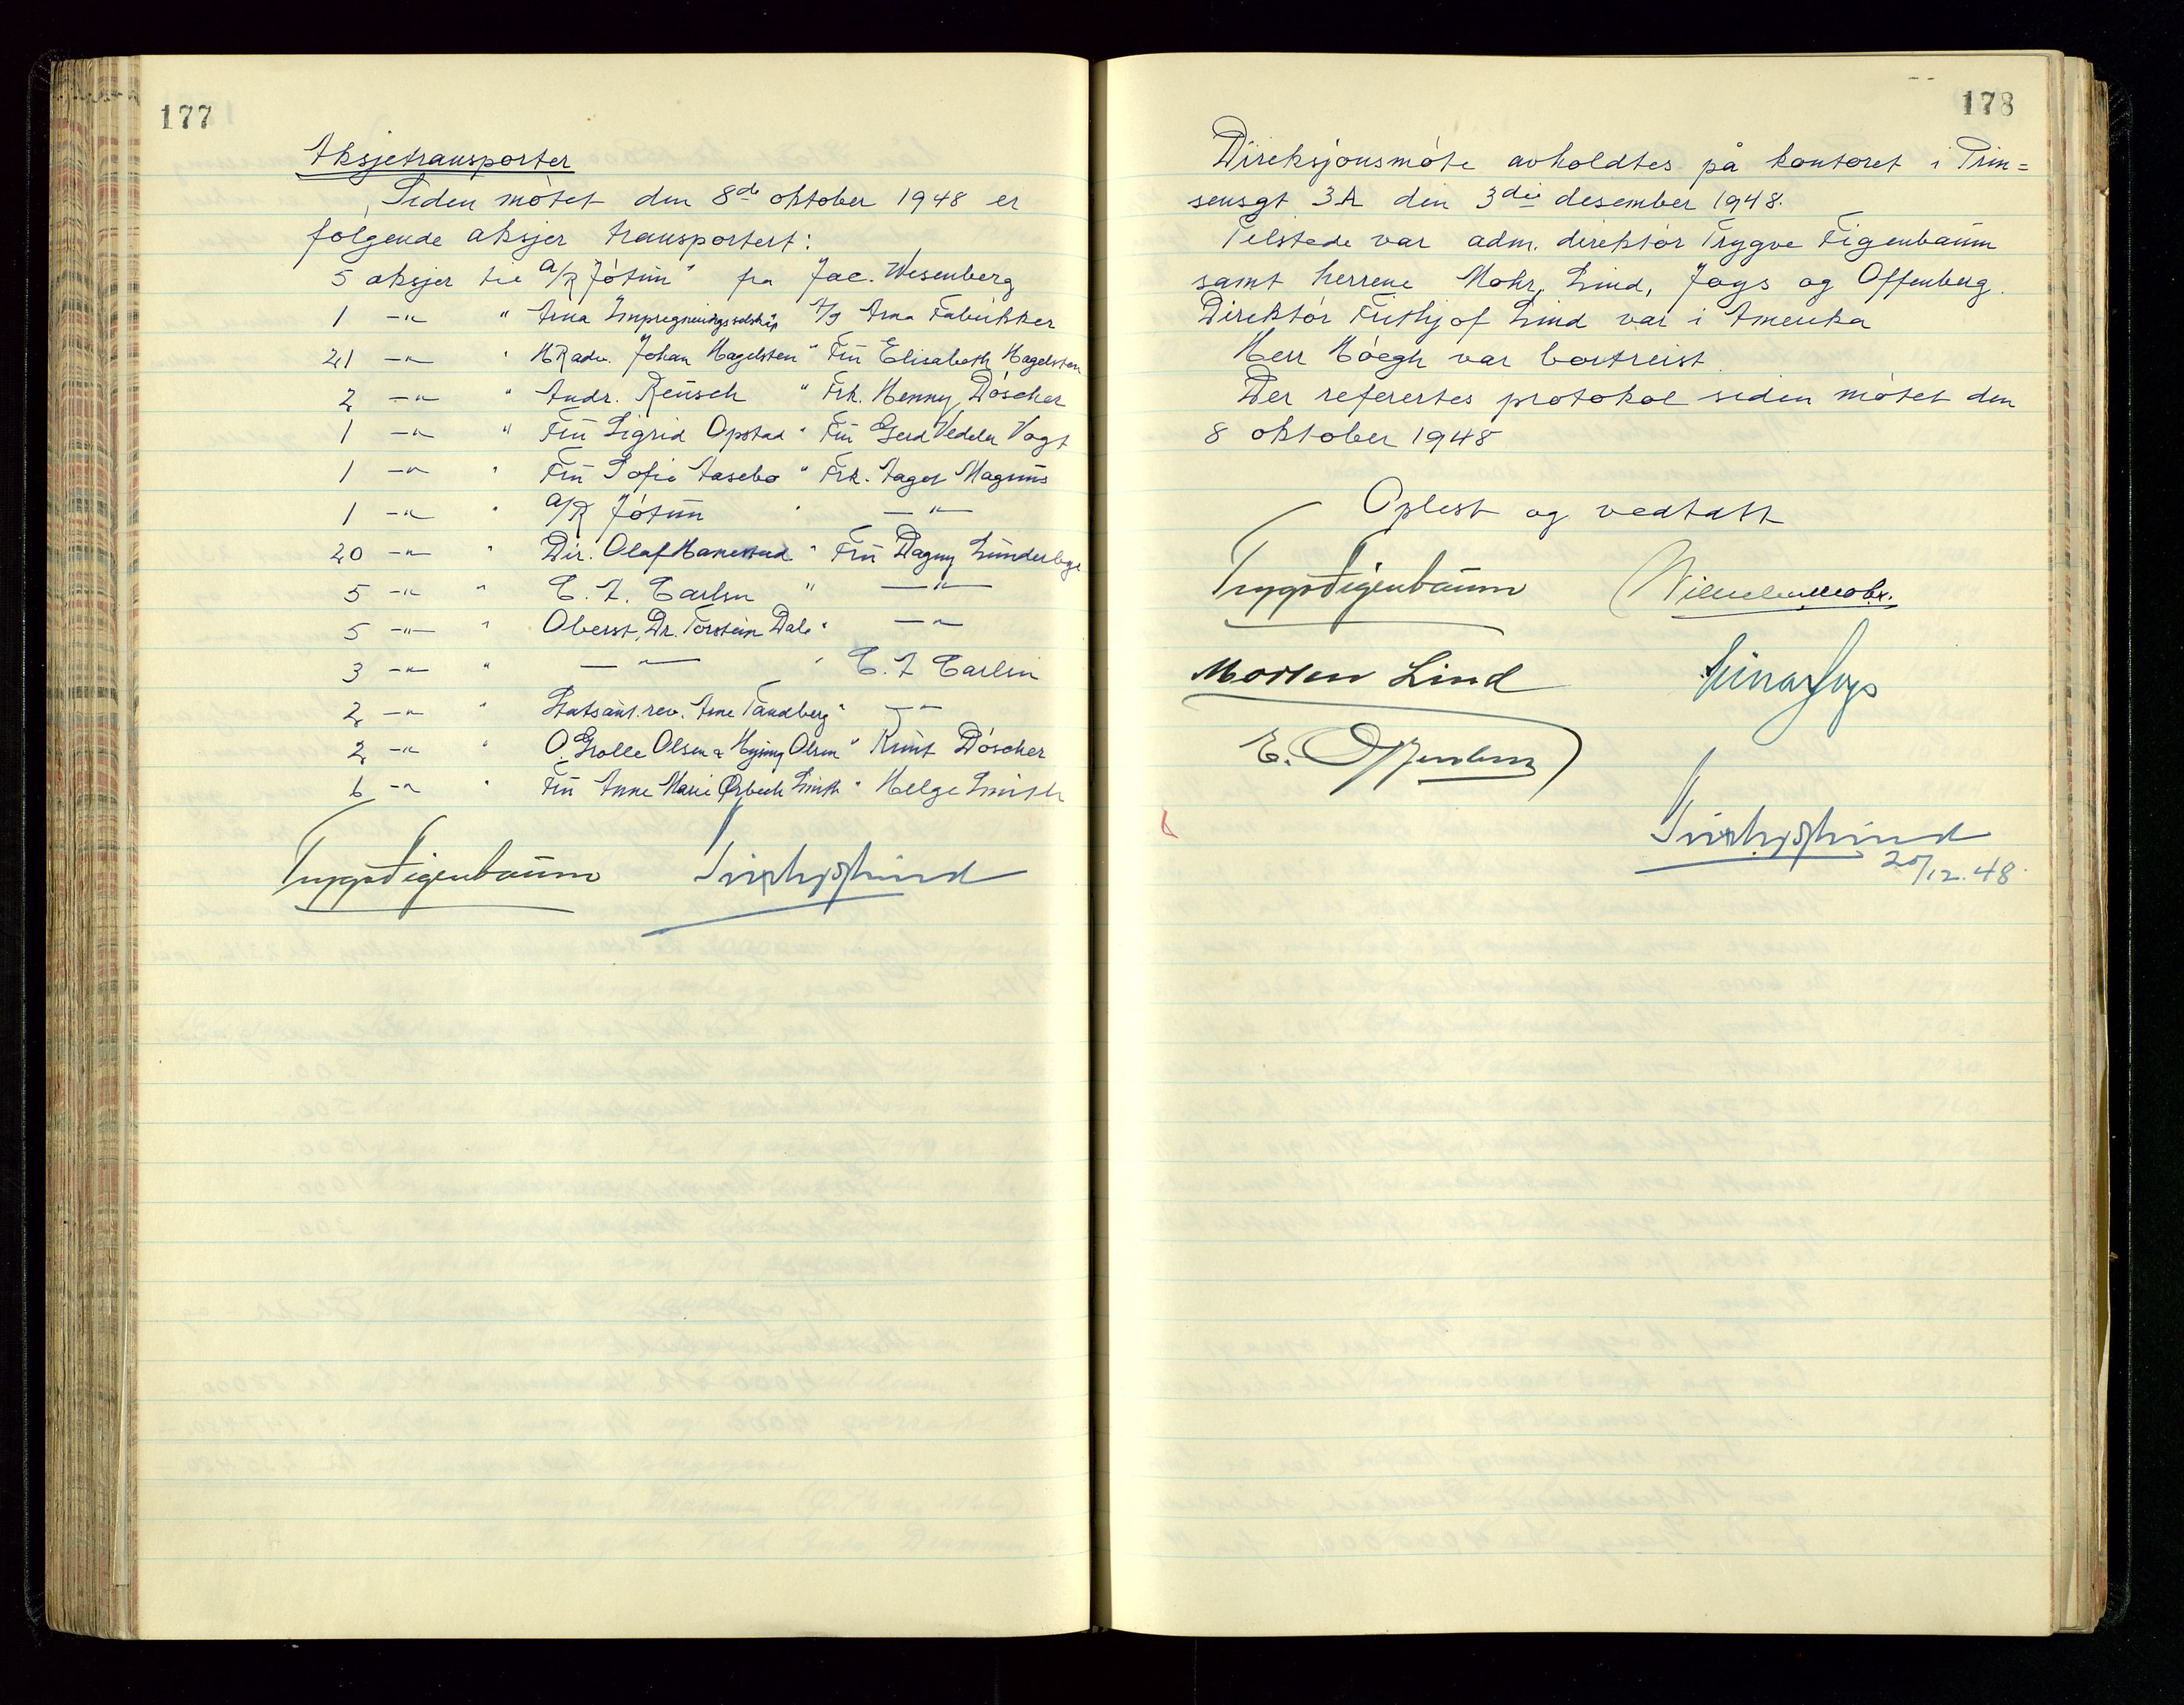 177
Aksjetransporter
Siden møtet den 8de oktober 1948 er
følgende aksjer transportert:
5 aksjer til A/R "Jøtun" fra Jac. Wesenberg
1 -"- " Arna Impregneringsselskap A/S Arna Fabrikker
21 -"- " HRadv. Johan Hagelsten " Frü Elisabeth Hagelsten
2 -"- " Andr. Reüsch " Frk. Henny Döscher
1 -"- " Frü Sigrid Opstad " Frü Gerd Vedeler Vogt
1 -"- " Frü Sofie Aasebø " Frk. Aagot Magnüs
1 -"- " A/R Jøtün " -"-
20 -"- " Dir. Olaf Hanestad " Frü Dagny Lünderbye
5 -"- " C. F. Carlsen " -"-
5 -"- " Oberst, Dr. Torstein Dale " -"-
3 -"- " -"- " C. F Carlsen
2 -"- " Statsaut. rev. Arne Tandberg " -"-
2 -"- " O. Grolle Olsen & Olsen " Knüt Döscher
6 -"- " Frü Anne Marie Ørbech Smith " Helge Smith
Trygve Figenbaüm Frithjof Lind
178
Direksjonsmøte avholdtes på kontoret i Prin=
sensgt 3A den 3die desember 1948.
Tilstede var adm. direktør Trygve Figenbaüm
samt herrene Mohr, Lind, Joys og Offenberg.
Direktør Frithjof Lind var i Amerika
Herr Höegh var bortreist
Der referertes protokol siden møtet den
8 oktober 1948
Oplest og vedtatt
Trygve Figenbaüm Wilhelm Mohr.
Morten Lind Einar Joys
E. Offenberg
Frithjof Lind
20/12.48.